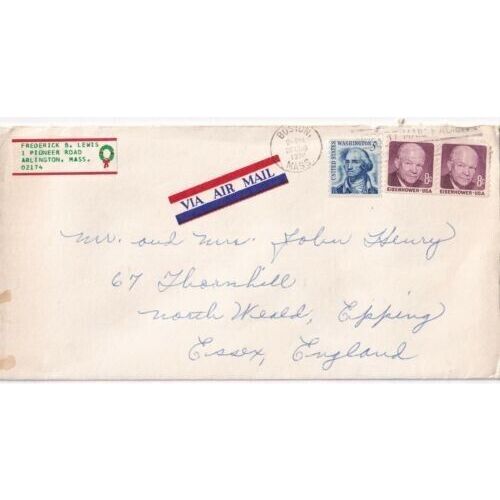 FREDERICK B. LEWIS
1 PIONEER ROAD
ARLINGTON, MASS.
02174
BOSTON,
MASS.
VIA AIR MAIL
UNITED STATES
WASHINGTON 5c
EISENHOWER·USA
8c
EISENHOWER·USA
8c
Mr. and Mrs. John Henry
67 Thornhill
North Weald, Epping
Essex, England